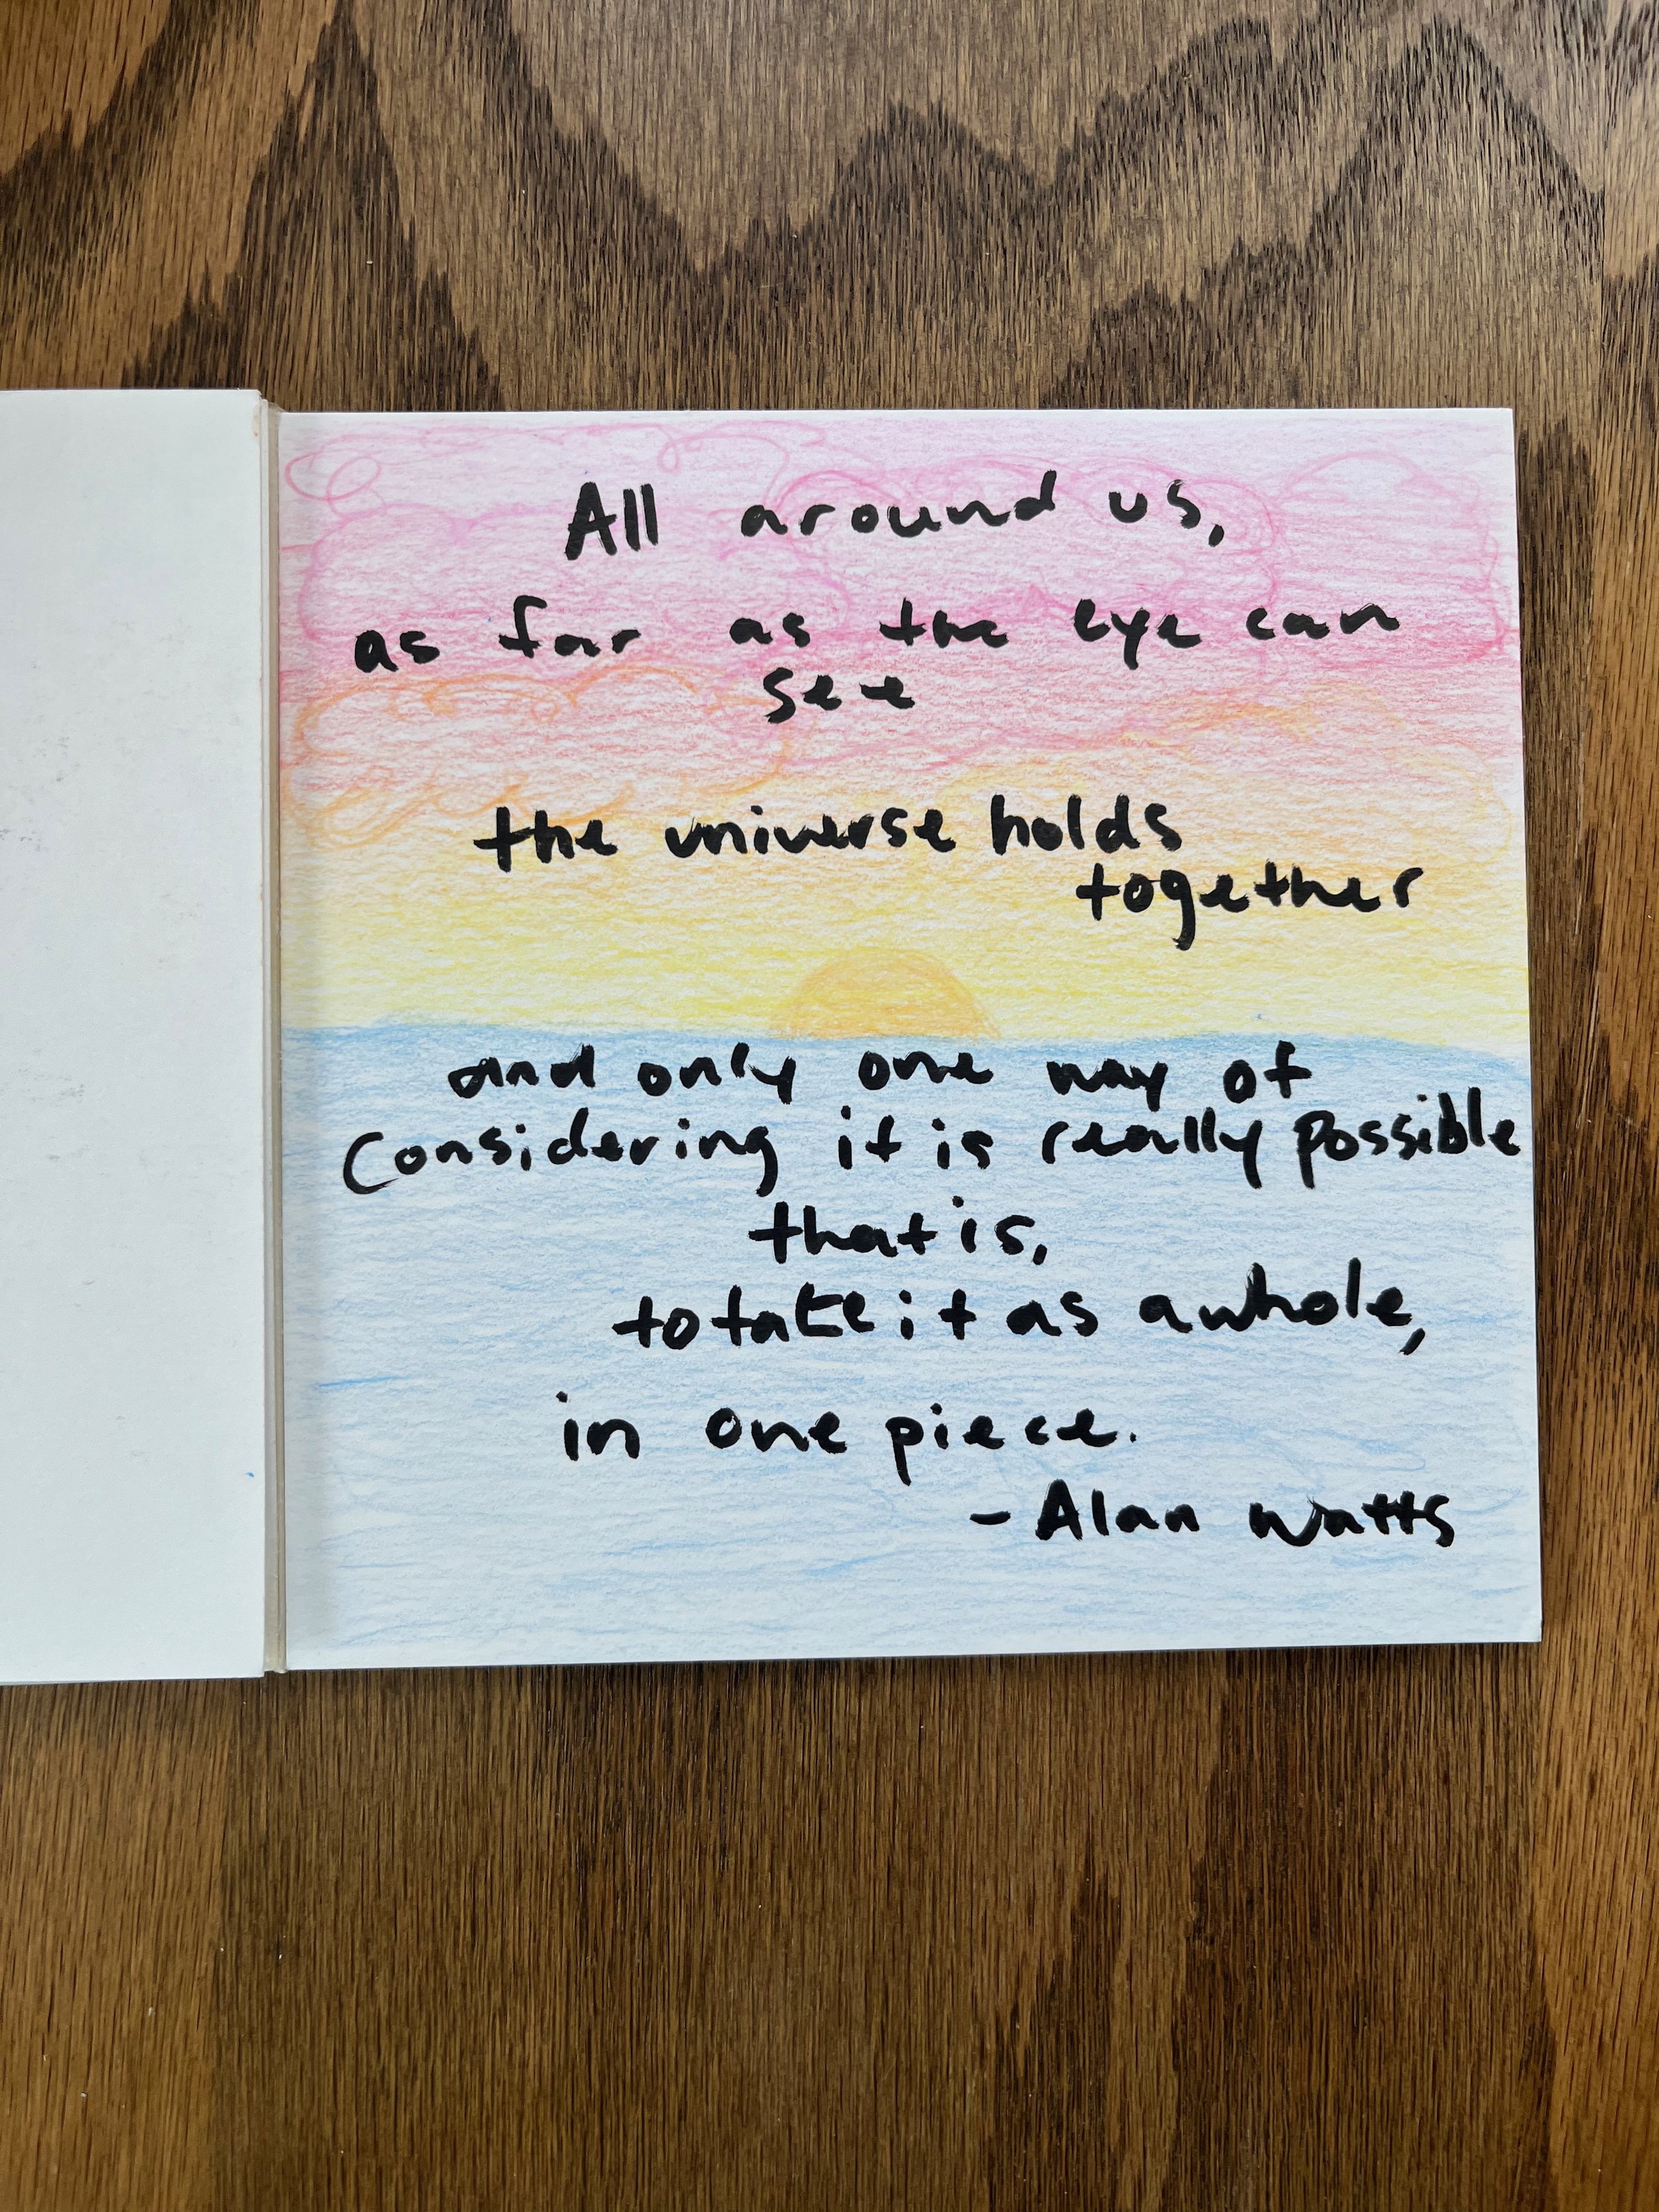 All around us,
as far as the eye can
see
the universe holds
together
and only one way of
considering it is really possible
that is,
to take it as a whole,
in one piece.
- Alan Watts